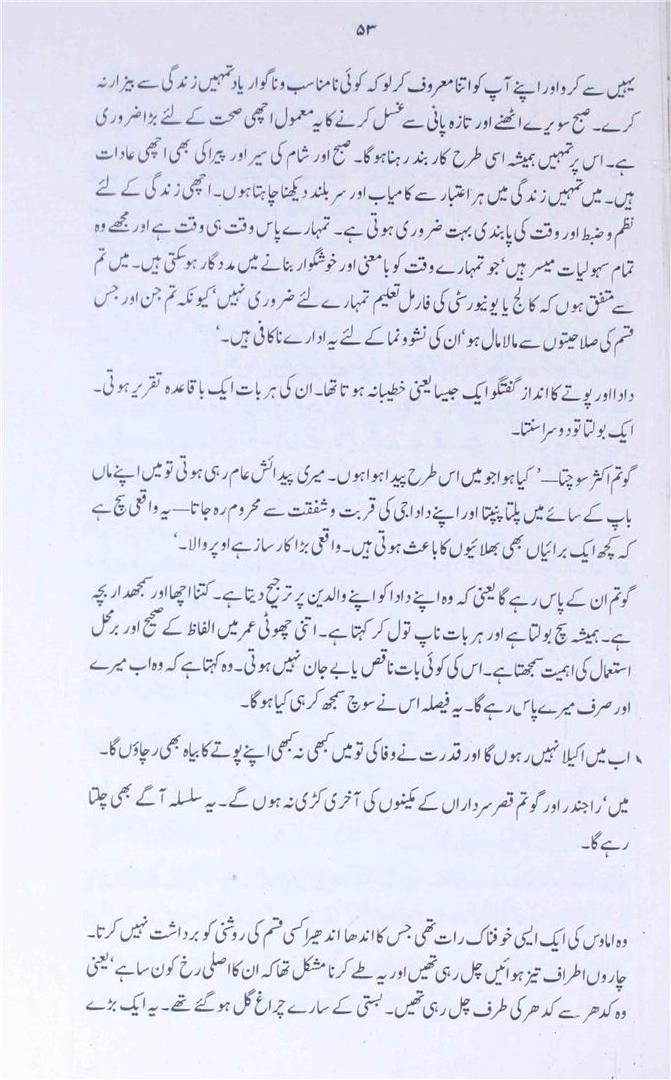 ۵۳
یہیں سے کرو اور اپنے آپ کو اتنا معروف کر لو کہ کوئی نامناسب و ناگوار یاد تمہیں زندگی سے بیزار نہ
کرے۔ صبح سویرے اٹھنے اور تازہ پانی سے غسل کرنے کا یہ معمول اچھی صحت کے لئے بڑا ضروری
ہے۔ اس پر تمہیں ہمیشہ اسی طرح کاربند رہنا ہوگا۔ صبح اور شام کی سیر اور پیراکی بھی اچھی عادات
ہیں۔ میں تمہیں زندگی میں ہر اعتبار سے کامیاب اور سربلند دیکھنا چاہتا ہوں۔ اچھی زندگی کے لئے
نظم و ضبط اور وقت کی پابندی بہت ضروری ہوتی ہے۔ تمہارے پاس وقت ہی وقت ہے اور مجھے وہ
تمام سہولیات میسر ہیں‘ جو تمہارے وقت کو بامعنی اور خوشگوار بنانے میں مددگار ہو سکتی ہیں۔ میں تم
سے متفق ہوں کہ کالج یا یونیورسٹی کی فارمل تعلیم تمہارے لئے ضروری نہیں‘ کیونکہ تم جن اور جس
قسم کی صلاحیتوں سے مالا مال ہو‘ ان کی نشوونما کے لئے یہ ادارے ناکافی ہیں۔‘
دادا اور پوتے کا انداز گفتگو ایک جیسا یعنی خطیبانہ ہوتا تھا۔ ان کی ہر بات ایک باقاعدہ تقریر ہوتی۔
ایک بولتا تو دوسرا سنتا۔
گوتم اکثر سوچتا—’ کیا ہوا جو میں اس طرح پیدا ہوا ہوں۔ میری پیدائش عام رہی ہوتی تو میں اپنے ماں
باپ کے سائے میں پلتا پنپتا اور اپنے دادا جی کی قربت و شفقت سے محروم رہ جاتا— یہ واقعی سچ ہے
کہ کچھ ایک برائیاں بھی بھلائیوں کا باعث ہوتی ہیں۔ واقعی بڑا کارساز ہے اوپر والا۔‘
گوتم ان کے پاس رہے گا یعنی کہ وہ اپنے دادا کو اپنے والدین پر ترجیح دیتا ہے۔ کتنا اچھا اور سمجھدار بچہ
ہے۔ ہمیشہ سچ بولتا ہے اور ہر بات ناپ تول کر کہتا ہے۔ اتنی چھوٹی عمر میں الفاظ کے صحیح اور برمحل
استعمال کی اہمیت سمجھتا ہے۔ اس کی کوئی بات ناقص یا بے جان نہیں ہوتی۔ وہ کہتا ہے کہ وہ اب میرے
اور صرف میرے پاس رہے گا۔ یہ فیصلہ اس نے سوچ سمجھ کر ہی کیا ہوگا۔
اب میں اکیلا نہیں رہوں گا اور قدرت نے وفا کی تو میں کبھی نہ کبھی اپنے پوتے کا بیاہ بھی رچاؤں گا۔
میں‘ راجندر اور گوتم قصر سرداراں کے مکینوں کی آخری کڑی نہ ہوں گے۔ یہ سلسلہ آگے بھی چلتا
رہے گا۔
وہ اماوس کی ایک ایسی خوفناک رات تھی‘ جس کا اندھا اندھیرا کسی قسم کی روشنی کو برداشت نہیں کرتا۔
چاروں اطراف تیز ہوائیں چل رہی تھیں اور یہ طے کرنا مشکل تھا کہ ان کا اصلی رخ کون سا ہے‘ یعنی
وہ کدھر سے کدھر کی طرف چل رہی تھیں۔ بستی کے سارے چراغ گل ہو گئے تھے۔ یہ ایک بڑے